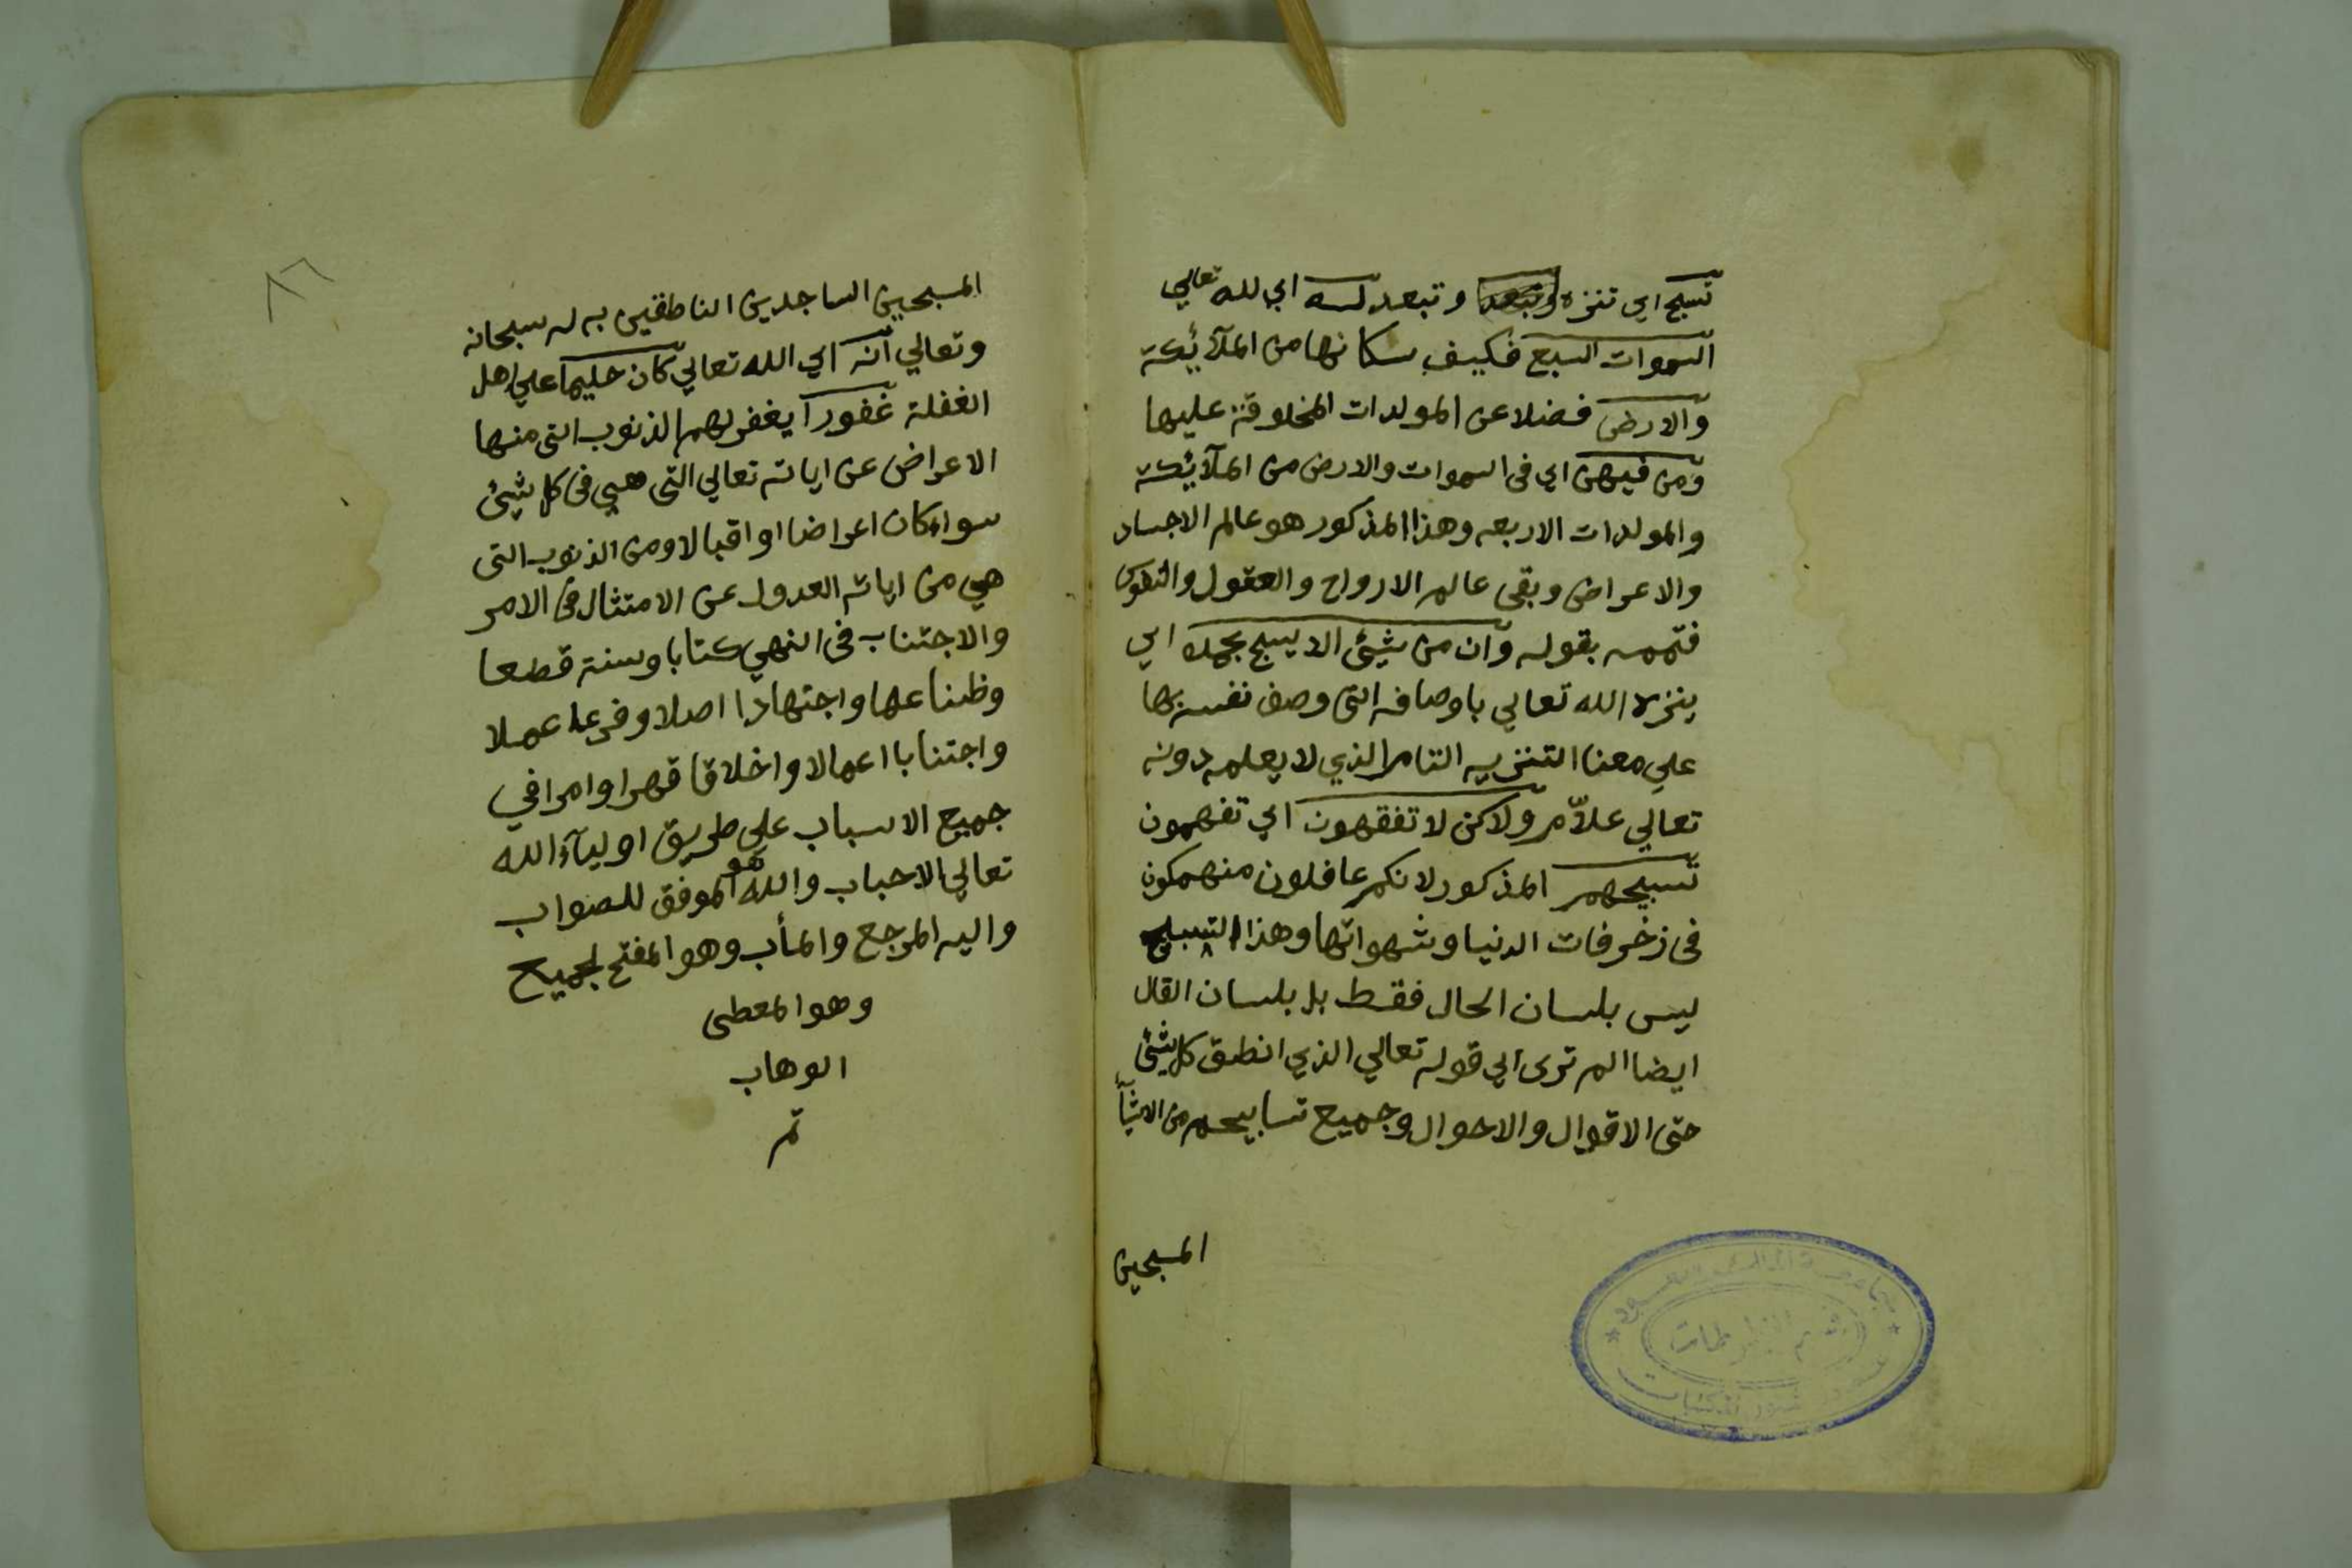 تسبح اي تنزه وتبعد وتبعد له اي لله تعالي
السموات السبع فكيف سكانها من الملآئكة
والارض فضلا عن المولدات المخلوقة عليها
ومن فيهن اي في السموات والارض من الملآئكة
والمولدات الاربعه وهذا المذكور هو عالم الاجساد
والاعراض وبقى عالم الارواح والعقول والنفوس
فتممه بقوله وان من شيئ الا يسبح بحمده اي
ينزه الله تعالي باوصافه التى وصف نفسه بها
علي معنا التنزيه التام الذي لا يعلمه دونه
تعالي علاّم ولاكن لا تفقهون اي تفهمون
تسبيحهم المذكور لانكم غافلون منهمكون
في زخرفات الدنيا وشهواتها وهذا التسبيح
ليس بلسان الحال فقط بل بلسان القال
ايضا الم ترى الي قوله تعالي الذي انطق كل شيئ
حتى الاقوال والاحوال وجميع تسابيحهم من الاشيآء
المسبحين
جامعة الملك سعود
قسم المخطوطات
المسبحين الساجدين الناطقين به له سبحانه
وتعالي انه اي الله تعالي كان حليما علي اهل
الغفلة غفورا يغفر لهم الذنوب التى منها
الاعراض عن اياته تعالي التى هي في كل شيئ
سواء كان اعراضا او اقبالا ومن الذنوب التى
هي من اياته العدول عن الامتثال في الامر
والاجتناب في النهي كتابا وسنة قطعا
وظنا علما واجتهادا اصلا وفرعا عملا
واجتنابا اعمالا واخلاقا قهرا وامرا في
جميع الاسباب علي طريق اوليآء الله
تعالي الاحباب والله هو الموفق للصواب
واليه المرجع والمأب وهو المفتح لجميع
وهو المعطى
الوهاب
تم
٨٦